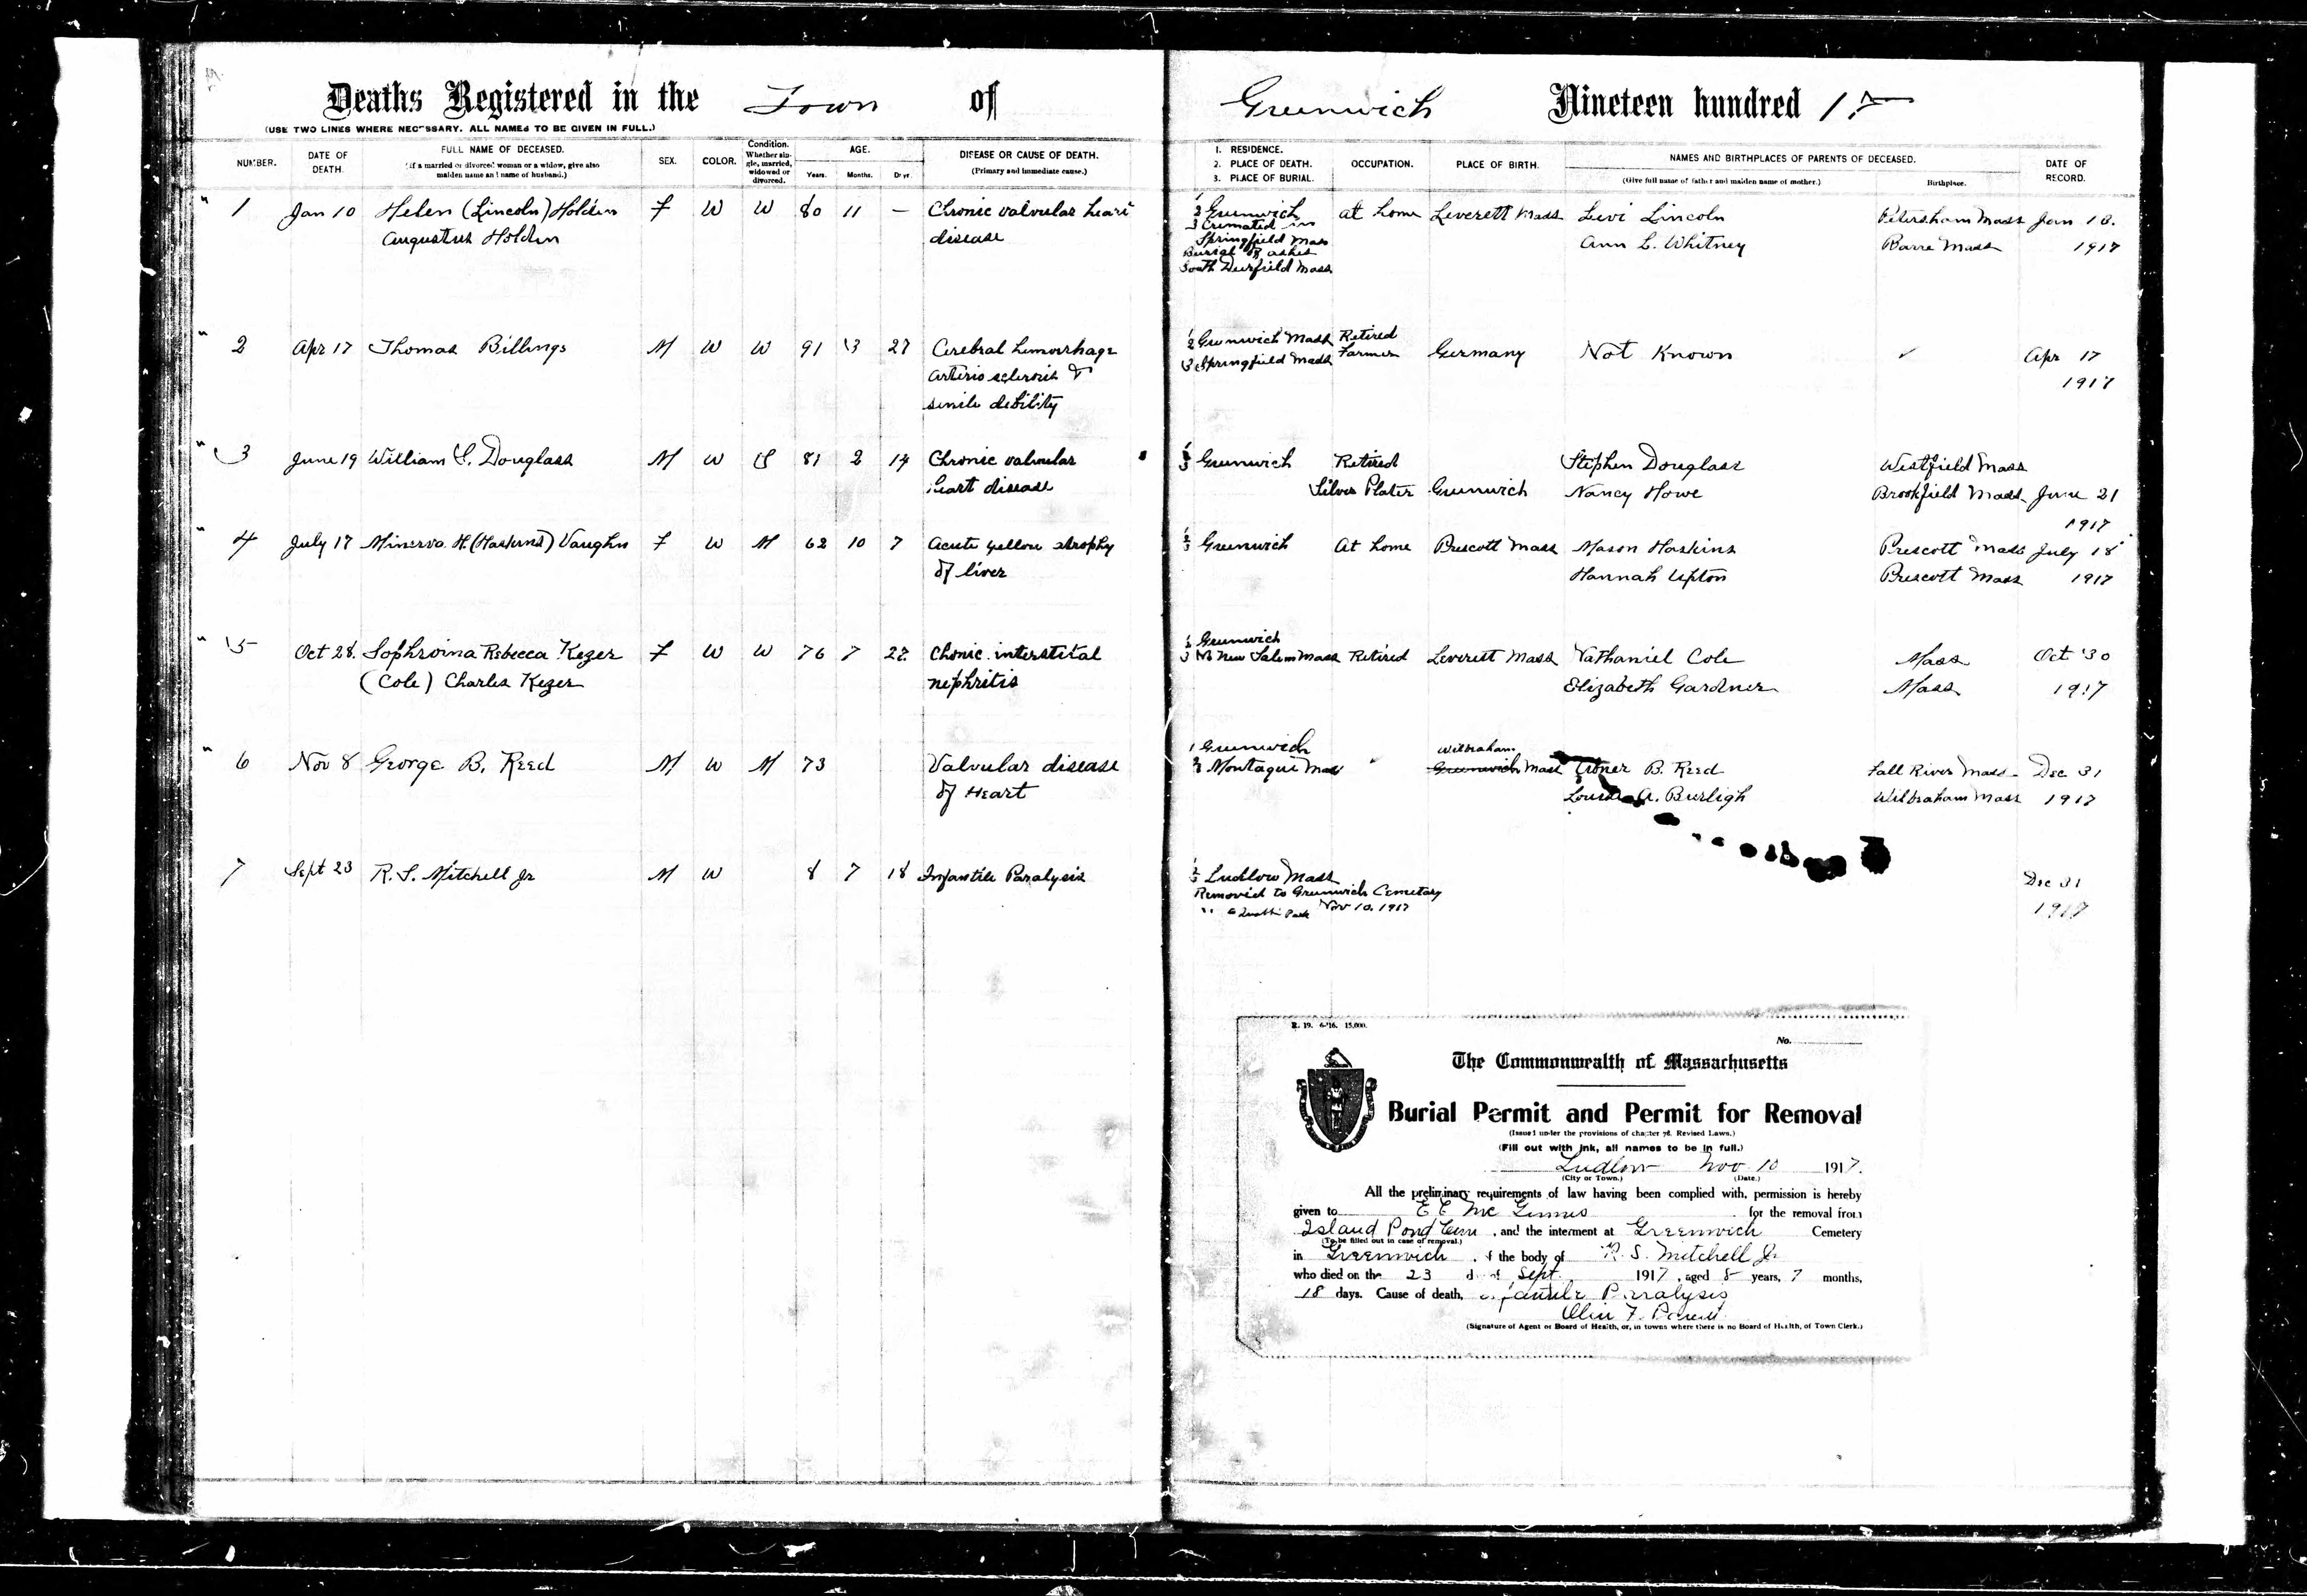 Deaths Registered in the Town of Greenwich Nineteen hundred 17
(USE TWO LINES WHERE NECESSARY. ALL NAMES TO BE GIVEN IN FULL.)
NUMBER. DATE OF DEATH. FULL NAME OF DECEASED. (If a married or divorced woman or a widow, give also maiden name and name of husband.) SEX. COLOR. Condition. Whether single, married, widowed or divorced. AGE. Years. Months. Days. DISEASE OR CAUSE OF DEATH. (Primary and immediate cause.) 1. RESIDENCE. 2. PLACE OF DEATH. 3. PLACE OF BURIAL. OCCUPATION. PLACE OF BIRTH. NAMES AND BIRTHPLACES OF PARENTS OF DECEASED. (Give full name of father and maiden name of mother.) Birthplace. DATE OF RECORD.
1 Jan 10 Helen (Lincoln) Holden F W W 80 11 — Chronic valvular heart 1 2 Greenwich at home Leverett Mass Levi Lincoln Petersham Mass Jan 18.
Augustus Holden disease 3 Cremated in Springfield Mass Ann L. Whitney Barre Mass 1917
Burial of ashes
South Deerfield Mass
2 Apr 17 Thomas Billings M W W 91 3 27 Cerebral hemorrhage 1 2 Greenwich Mass Retired Germany Not Known Apr 17
Arterio sclerosis & 3 Springfield Mass Farmer 1917
senile debility
3 June 19 William S. Douglass M W S 81 2 14 Chronic valvular 1 2 3 Greenwich Retired Stephen Douglass Westfield Mass
heart disease Silver Plater Greenwich Nancy Howe Brookfield Mass June 21
1917
4 July 17 Minerva H. (Haskins) Vaughn F W M 62 10 7 Acute yellow atrophy 1 2 3 Greenwich At home Prescott Mass Mason Haskins Prescott Mass July 18
of liver Hannah Upton Prescott Mass 1917
5 Oct 28. Sophroina Rebecca Kezer F W W 76 7 22 Chonic interstital 1 2 Greenwich 3 N New Salem Mass Retired Leverett Mass Nathaniel Cole Mass Oct 30
(Cole) Charles Kezer nephritis Elizabeth Gardner Mass 1917
6 Nov 8 George B. Reed M W M 73 Valvular disease 1 Greenwich Wilbraham Greenwich Mass Abner B. Reed Fall River Mass Dec 31
of Heart 2 3 Montague Mass Louisa A. Burligh Wilbraham Mass 1917
7 Sept 23 R. S. Mitchell Jr M W 8 7 18 Infantile Paralysis 1 2 3 Ludlow Mass Dec 31
Removed to Greenwich Cemetary 1917
" Quabbin Park Nov 10. 1917
R. 19. 6-'16. 15,000.
No.
The Commonwealth of Massachusetts
Burial Permit and Permit for Removal
(Issued under the provisions of chapter 78, Revised Laws.)
(Fill out with ink, all names to be in full.)
Ludlow Nov 10 1917.
(City or Town.) (Date.)
All the preliminary requirements of law having been complied with, permission is hereby
given to E E Mc Ginnis for the removal from
Island Pond Cem, and the interment at Greenwich Cemetery
(To be filled out in case of removal.)
in Greenwich, of the body of R. S. Mitchell Jr
who died on the 23 day of Sept. 1917, aged 8 years, 7 months,
18 days. Cause of death, Infantile Paralysis
(Signature of Agent of Board of Health, or, in towns where there is no Board of Health, of Town Clerk.)